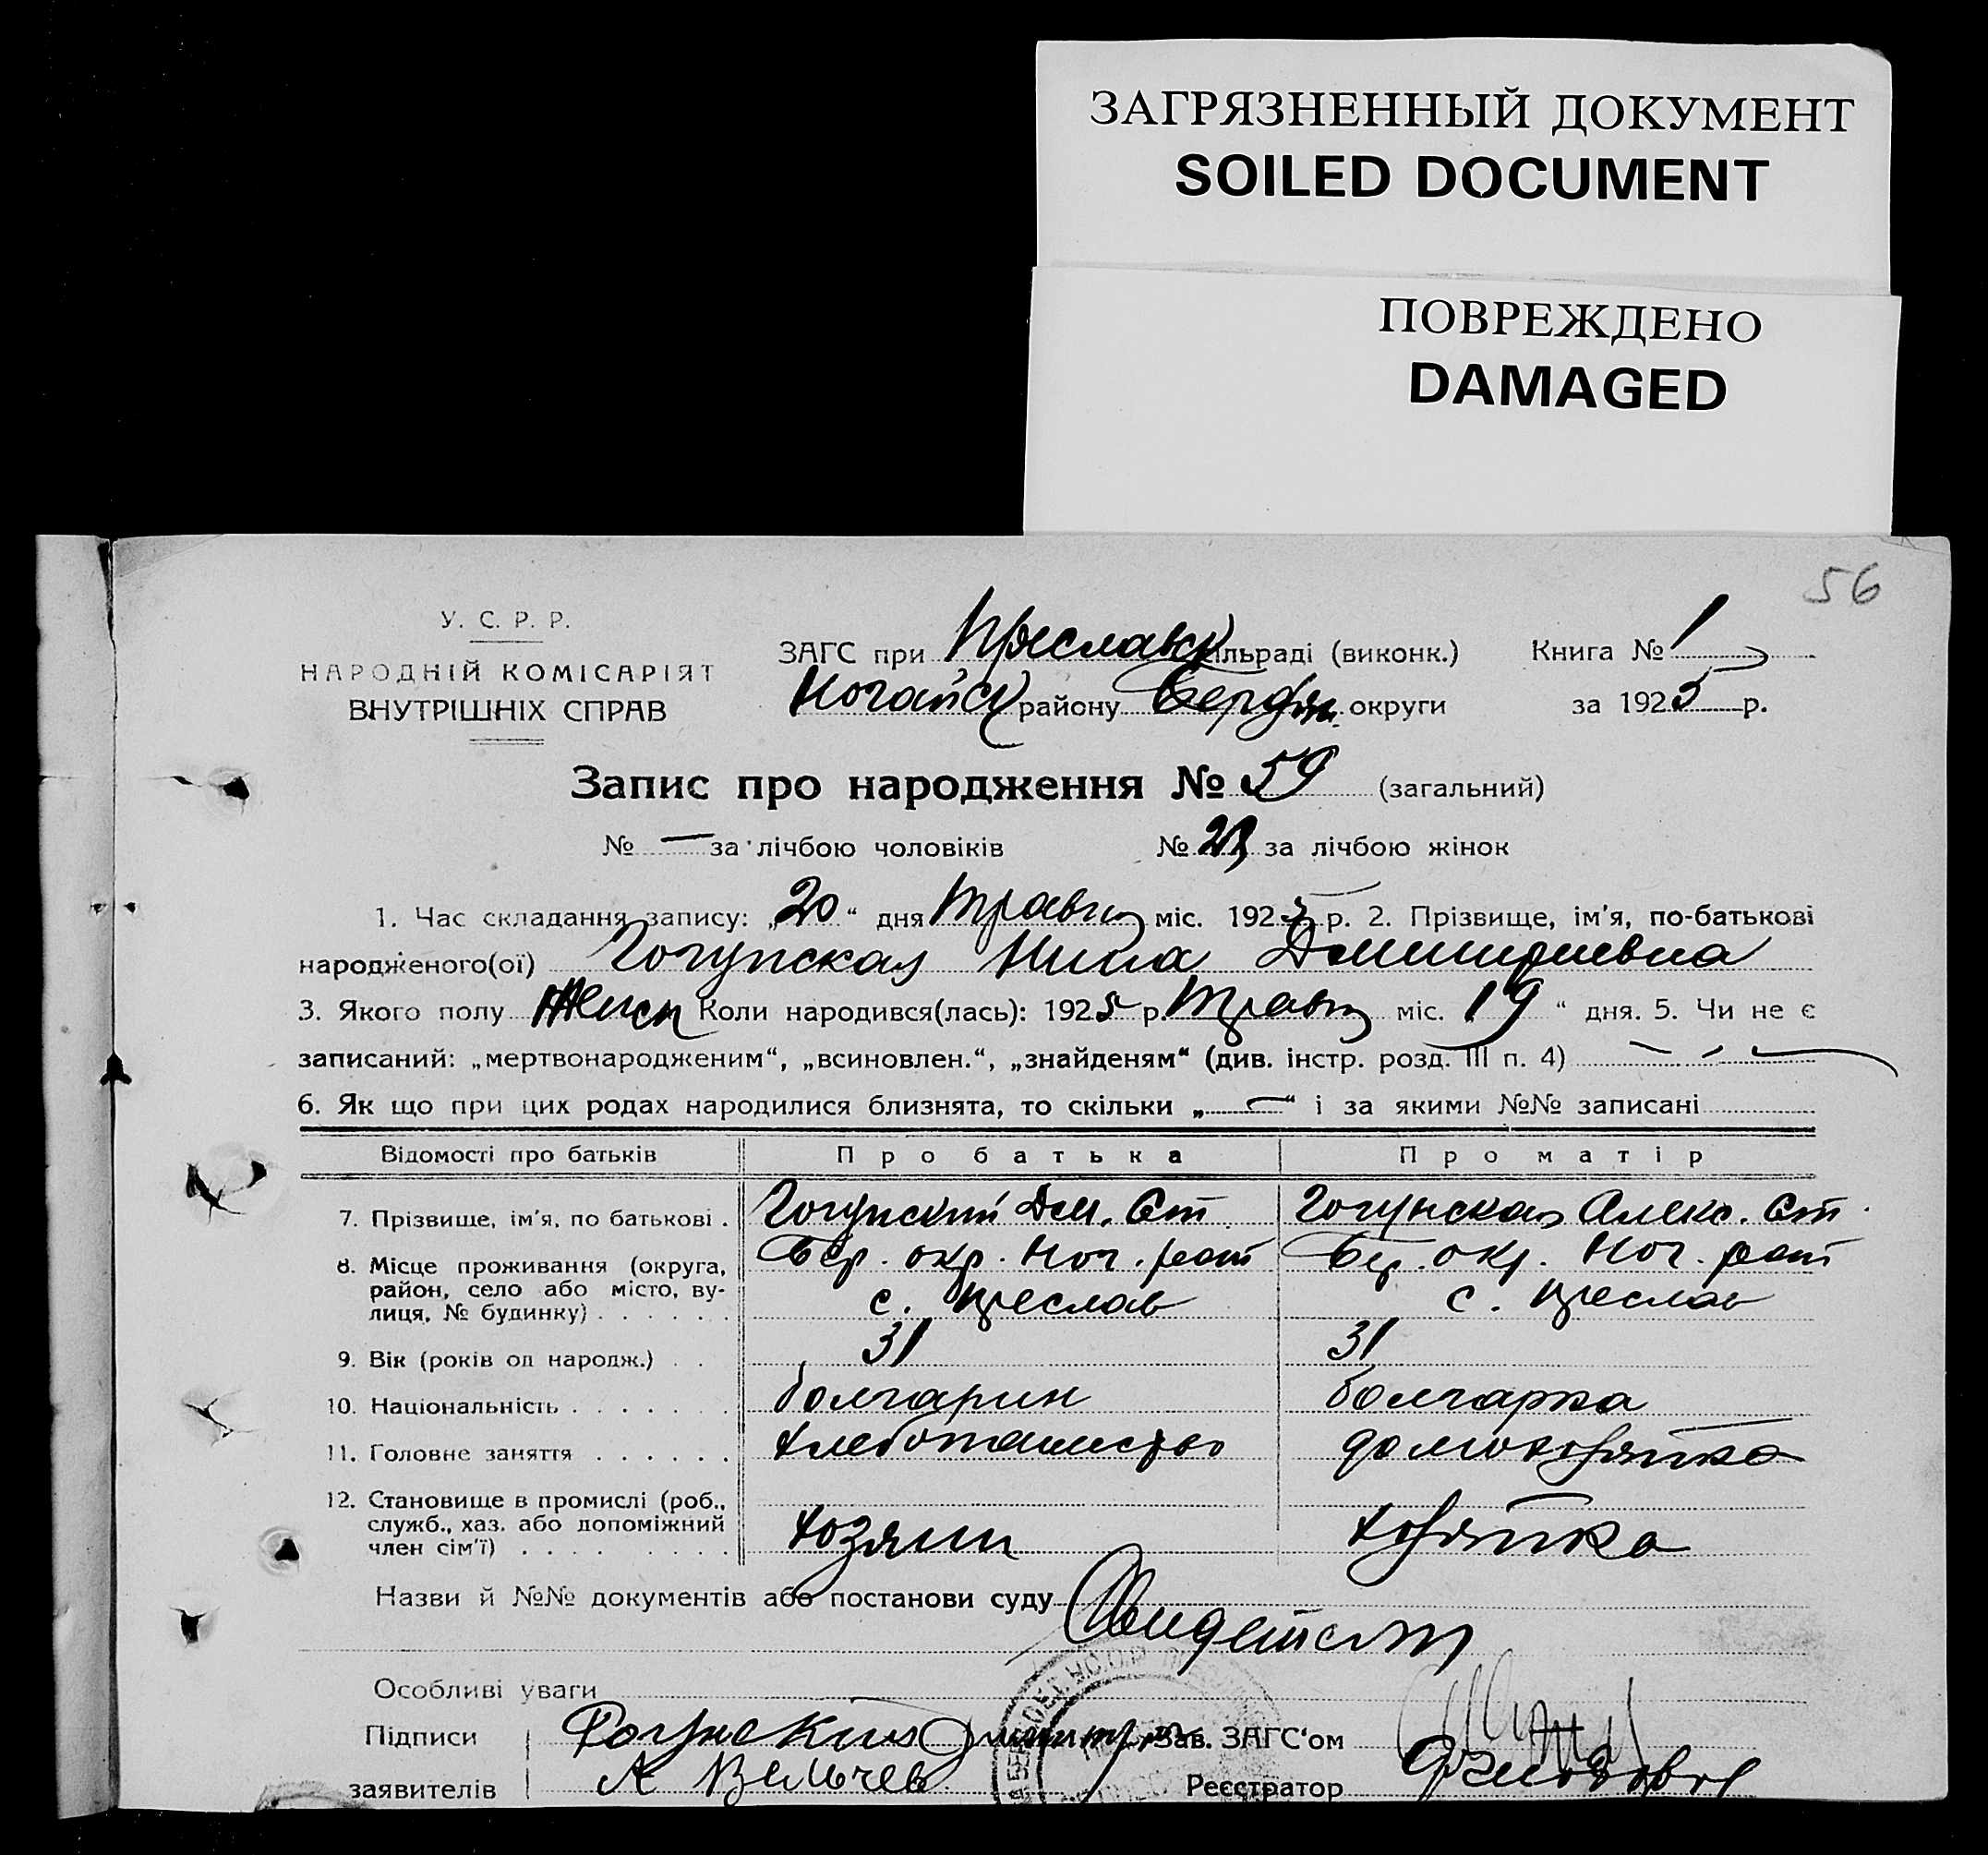 ЗАГРЯЗНЕННЫЙ ДОКУМЕНТ
SOILED DOCUMENT
ПОВРЕЖДЕНО
DAMAGED
56
У. С. Р. Р.
НАРОДНІЙ КОМІСАРІЯТ
ВНУТРІШНІХ СПРАВ
ЗАГС при Преславк ільраді (виконк.) Книга № 1
Ногайск району Бердян. округи за 1925 р.
Запис про народження № 59 (загальний)
№ — за лічбою чоловіків № за лічбою жінок
1. Час складання запису: „20“ дня Травн міс. 1925 р. 2. Прізвище, ім’я, по-батькові
народженого(ої) Гогунская Нина Дмитриевна
3. Якого полу Женск Коли народився(лась): 1925 р. Травн міс. 19 “ дня. 5. Чи не є
записаний: „мертвонародженим“, „всиновлен.“, „знайденям“ (див. інстр. розд. III п. 4) — — —
6. Як що при цих родах народилися близнята, то скільки „—“ і за якими №№ записані
Відомості про батьків Про батька Про матір
7. Прізвище, ім’я, по батькові . Гогунский Дм. Ст Гогунская Алекс. Ст.
8. Місце проживання (округа, Бер. окр. Ног. раит Бер. окр. Ног. раит
район, село або місто, ву- с. Преслав с. Преслав
лиця, № будинку) . . . . . .
9. Вік (років од народж.) . . 31 31
10. Національність . . . . . . . болгарин болгарка
11. Головне заняття . . . . . . хлебопашество домохозяйка
12. Становище в промислі (роб.,
служб., хаз. або допоміжний хозяин хозяйка
член сім’ї) . . . . . . . . .
Назви й №№ документів або постанови суду
Особливі уваги
Підписи Гогунский Дмитр Зав. ЗАГС‘ом
заявителів А Вельчев Реєстратор